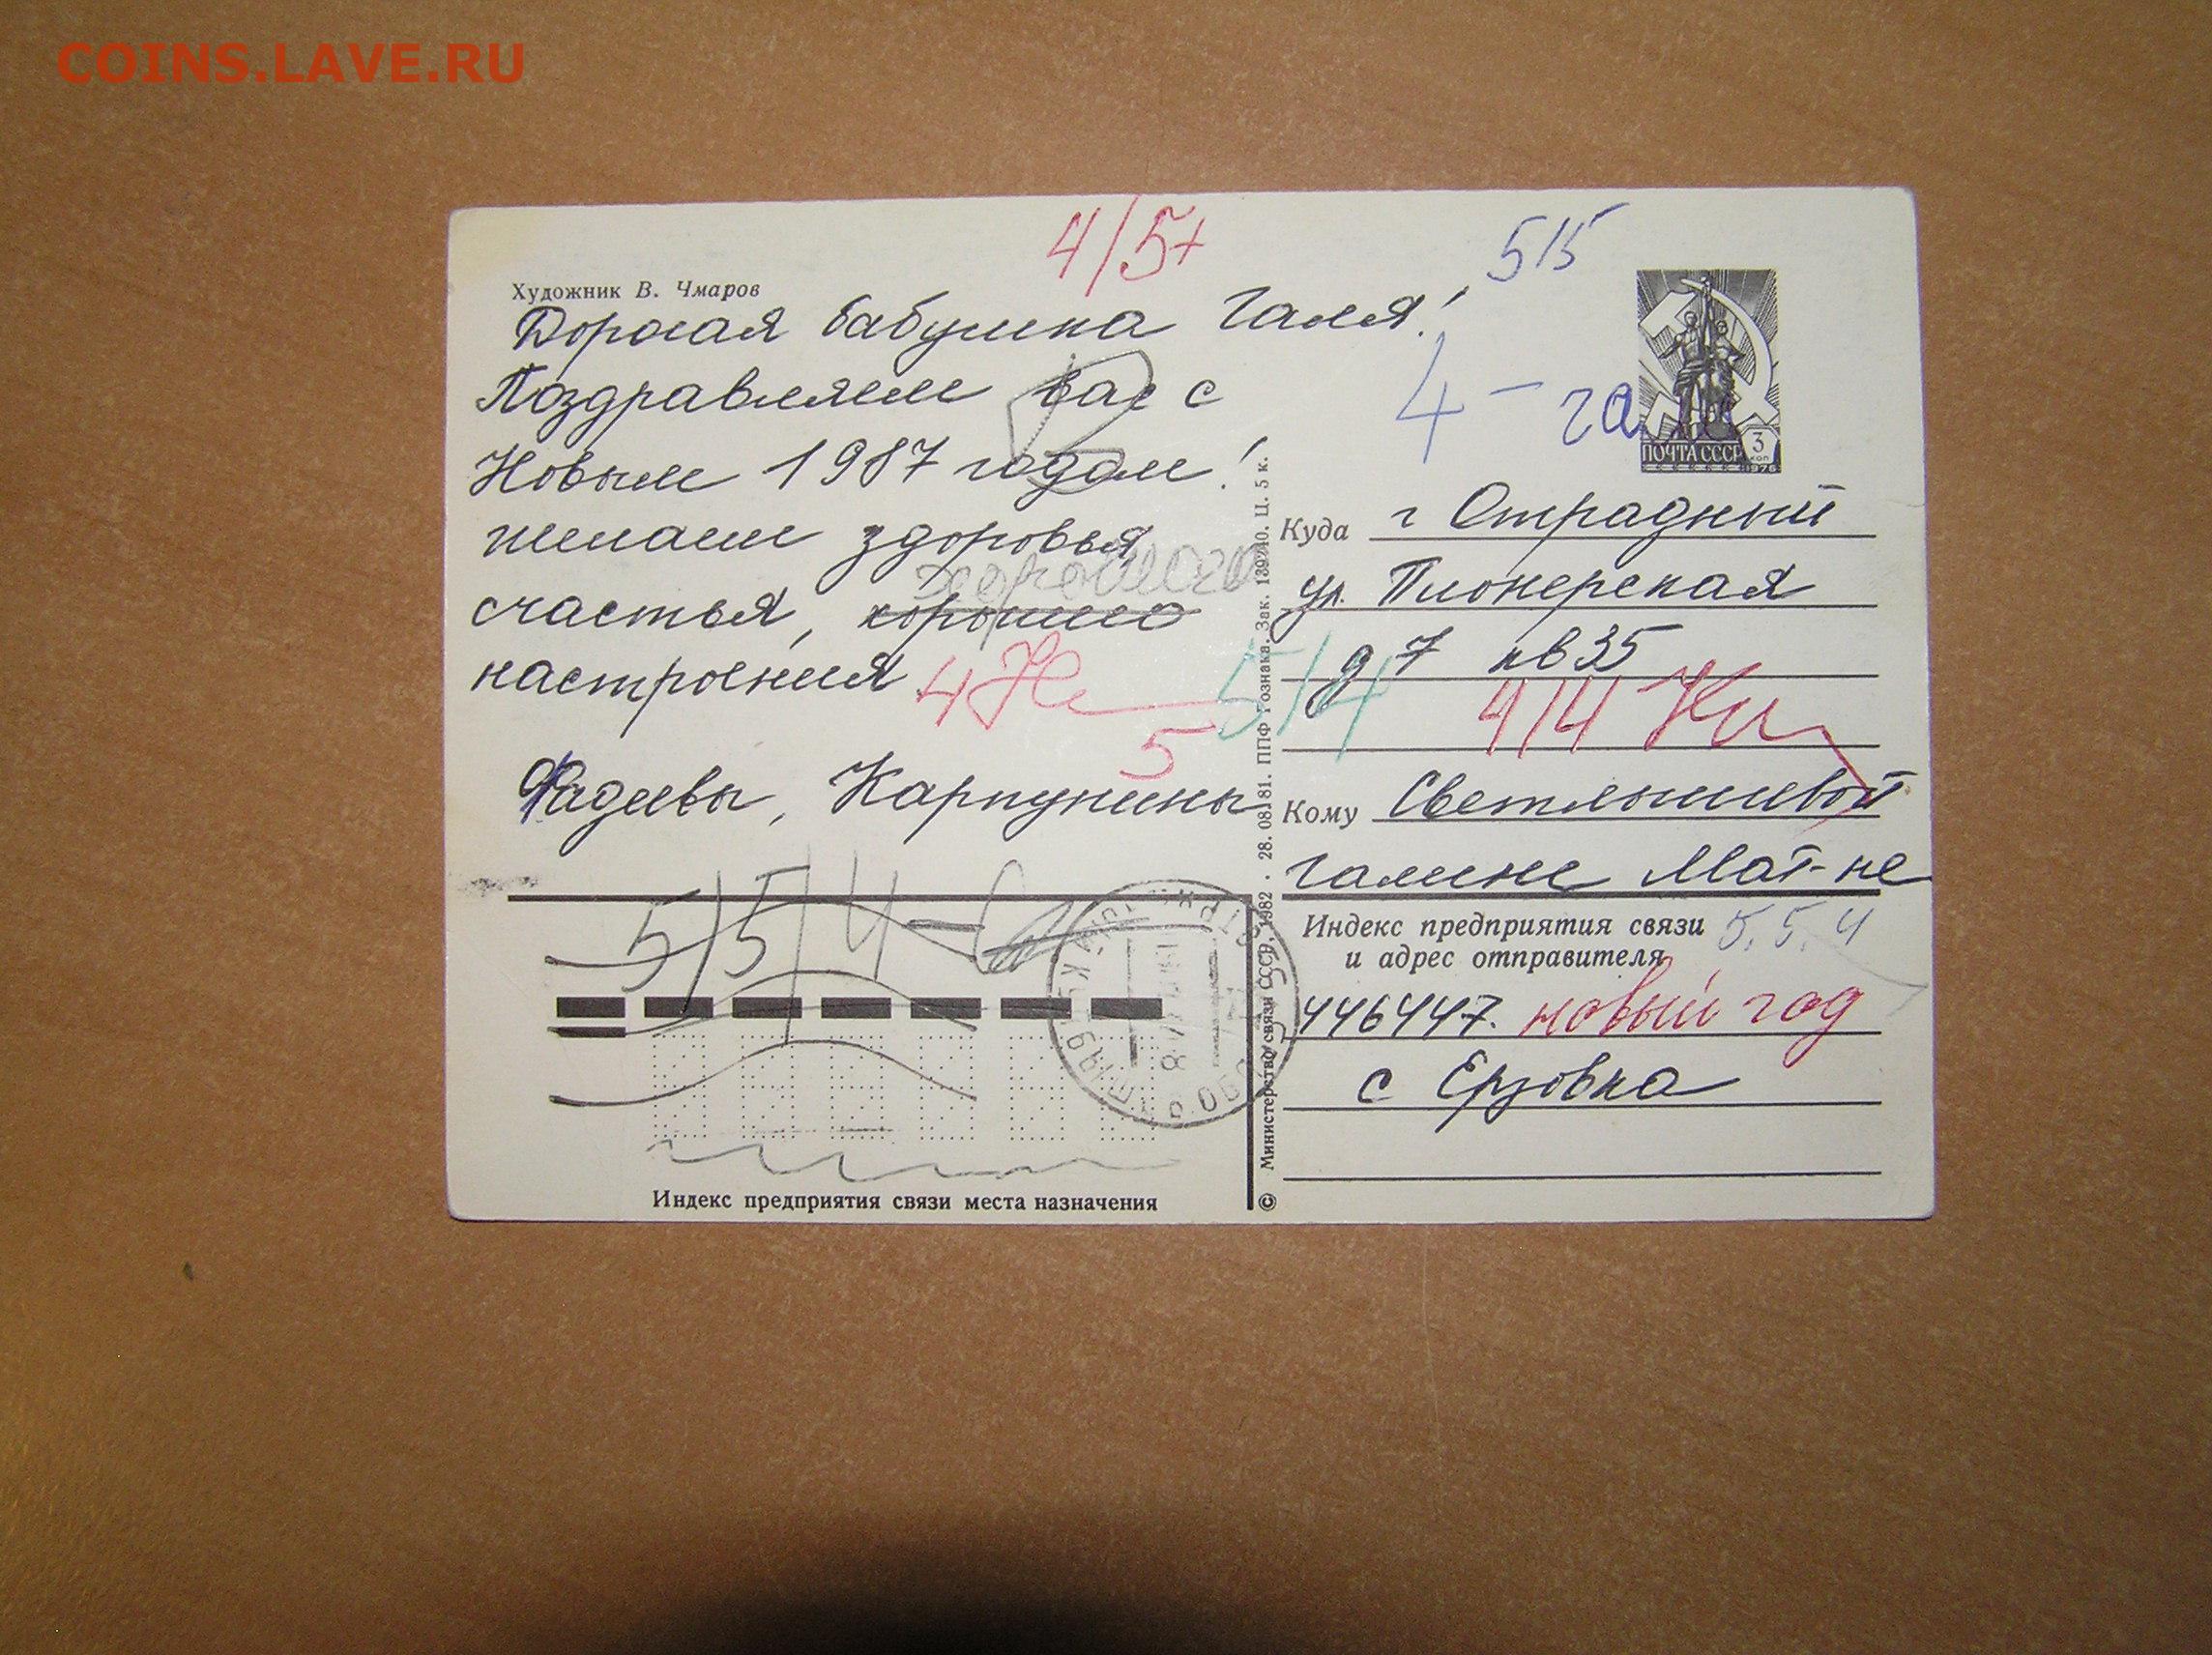 COINS.LAVE.RU
4/5+
5/5
Художник В. Чмаров
Дорогая бабушка Галя!
Поздравляем вас с
Новым 1987 годом!
желаем здоровья,
хорошего
счастья, хорошио
настроения
4 Не
5
Фадеевы, Карпунины
5/5/4
4 - га
ПОЧТА СССР 3 КОП
1976
Куда г Отрадный
ул. Пионерская
д 7 кв 35
5/4
4/4
Кому Светлышевой
Галине Мат-не
Индекс предприятия связи
и адрес отправителя
5, 5, 4
446447. новый год
с Ерзовка
Индекс предприятия связи места назначения
© Министерство связи СССР, 1982 . 28. 08. 81. ППФ Гознака. Зак. 139240. Ц. 5 к.